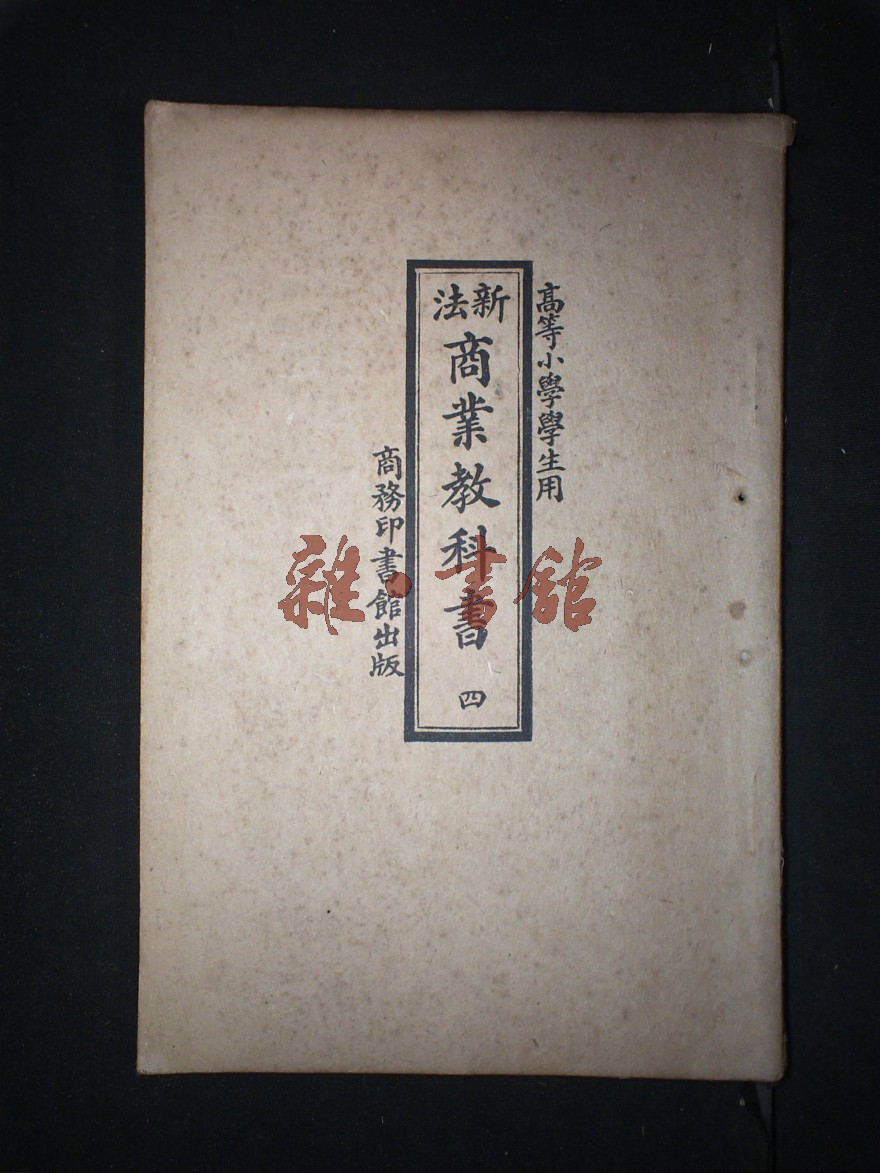 高等小學學生用
新法
商業教科書 四
商務印書館出版
雜·書館